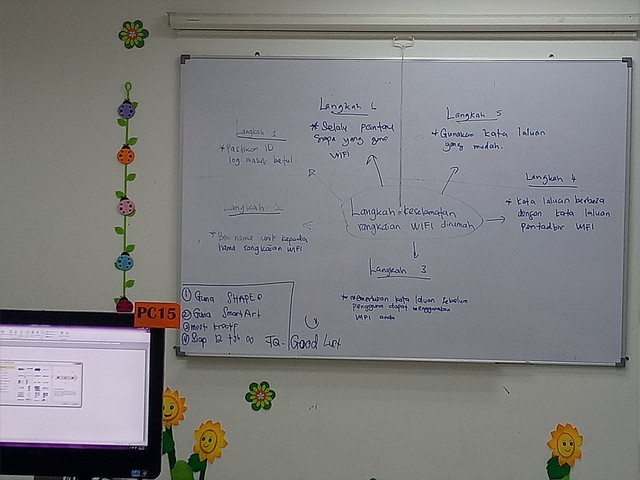 Langkah 6
* Selalu pantau
siapa yang guna
WIFI
Langkah 5
* Gunakan kata laluan
yang mudah.
Langkah 1
* Pastikan ID
log masuk betul
Langkah 4
* Kata laluan berbeza
dengan kata laluan
Pentadbir WIFI
Langkah keselamatan
rangkaian WIFI dirumah
Langkah 2
* Beri nama unik kepada
nama rangkaian WIFI
Langkah 3
* memerlukan kata laluan sebelum
pengguna dapat menggunakan
WIFI anda
① Guna SHAPES
② Guna SmartArt
③ most kreatif
④ Siap 12
Good Luck
PC15